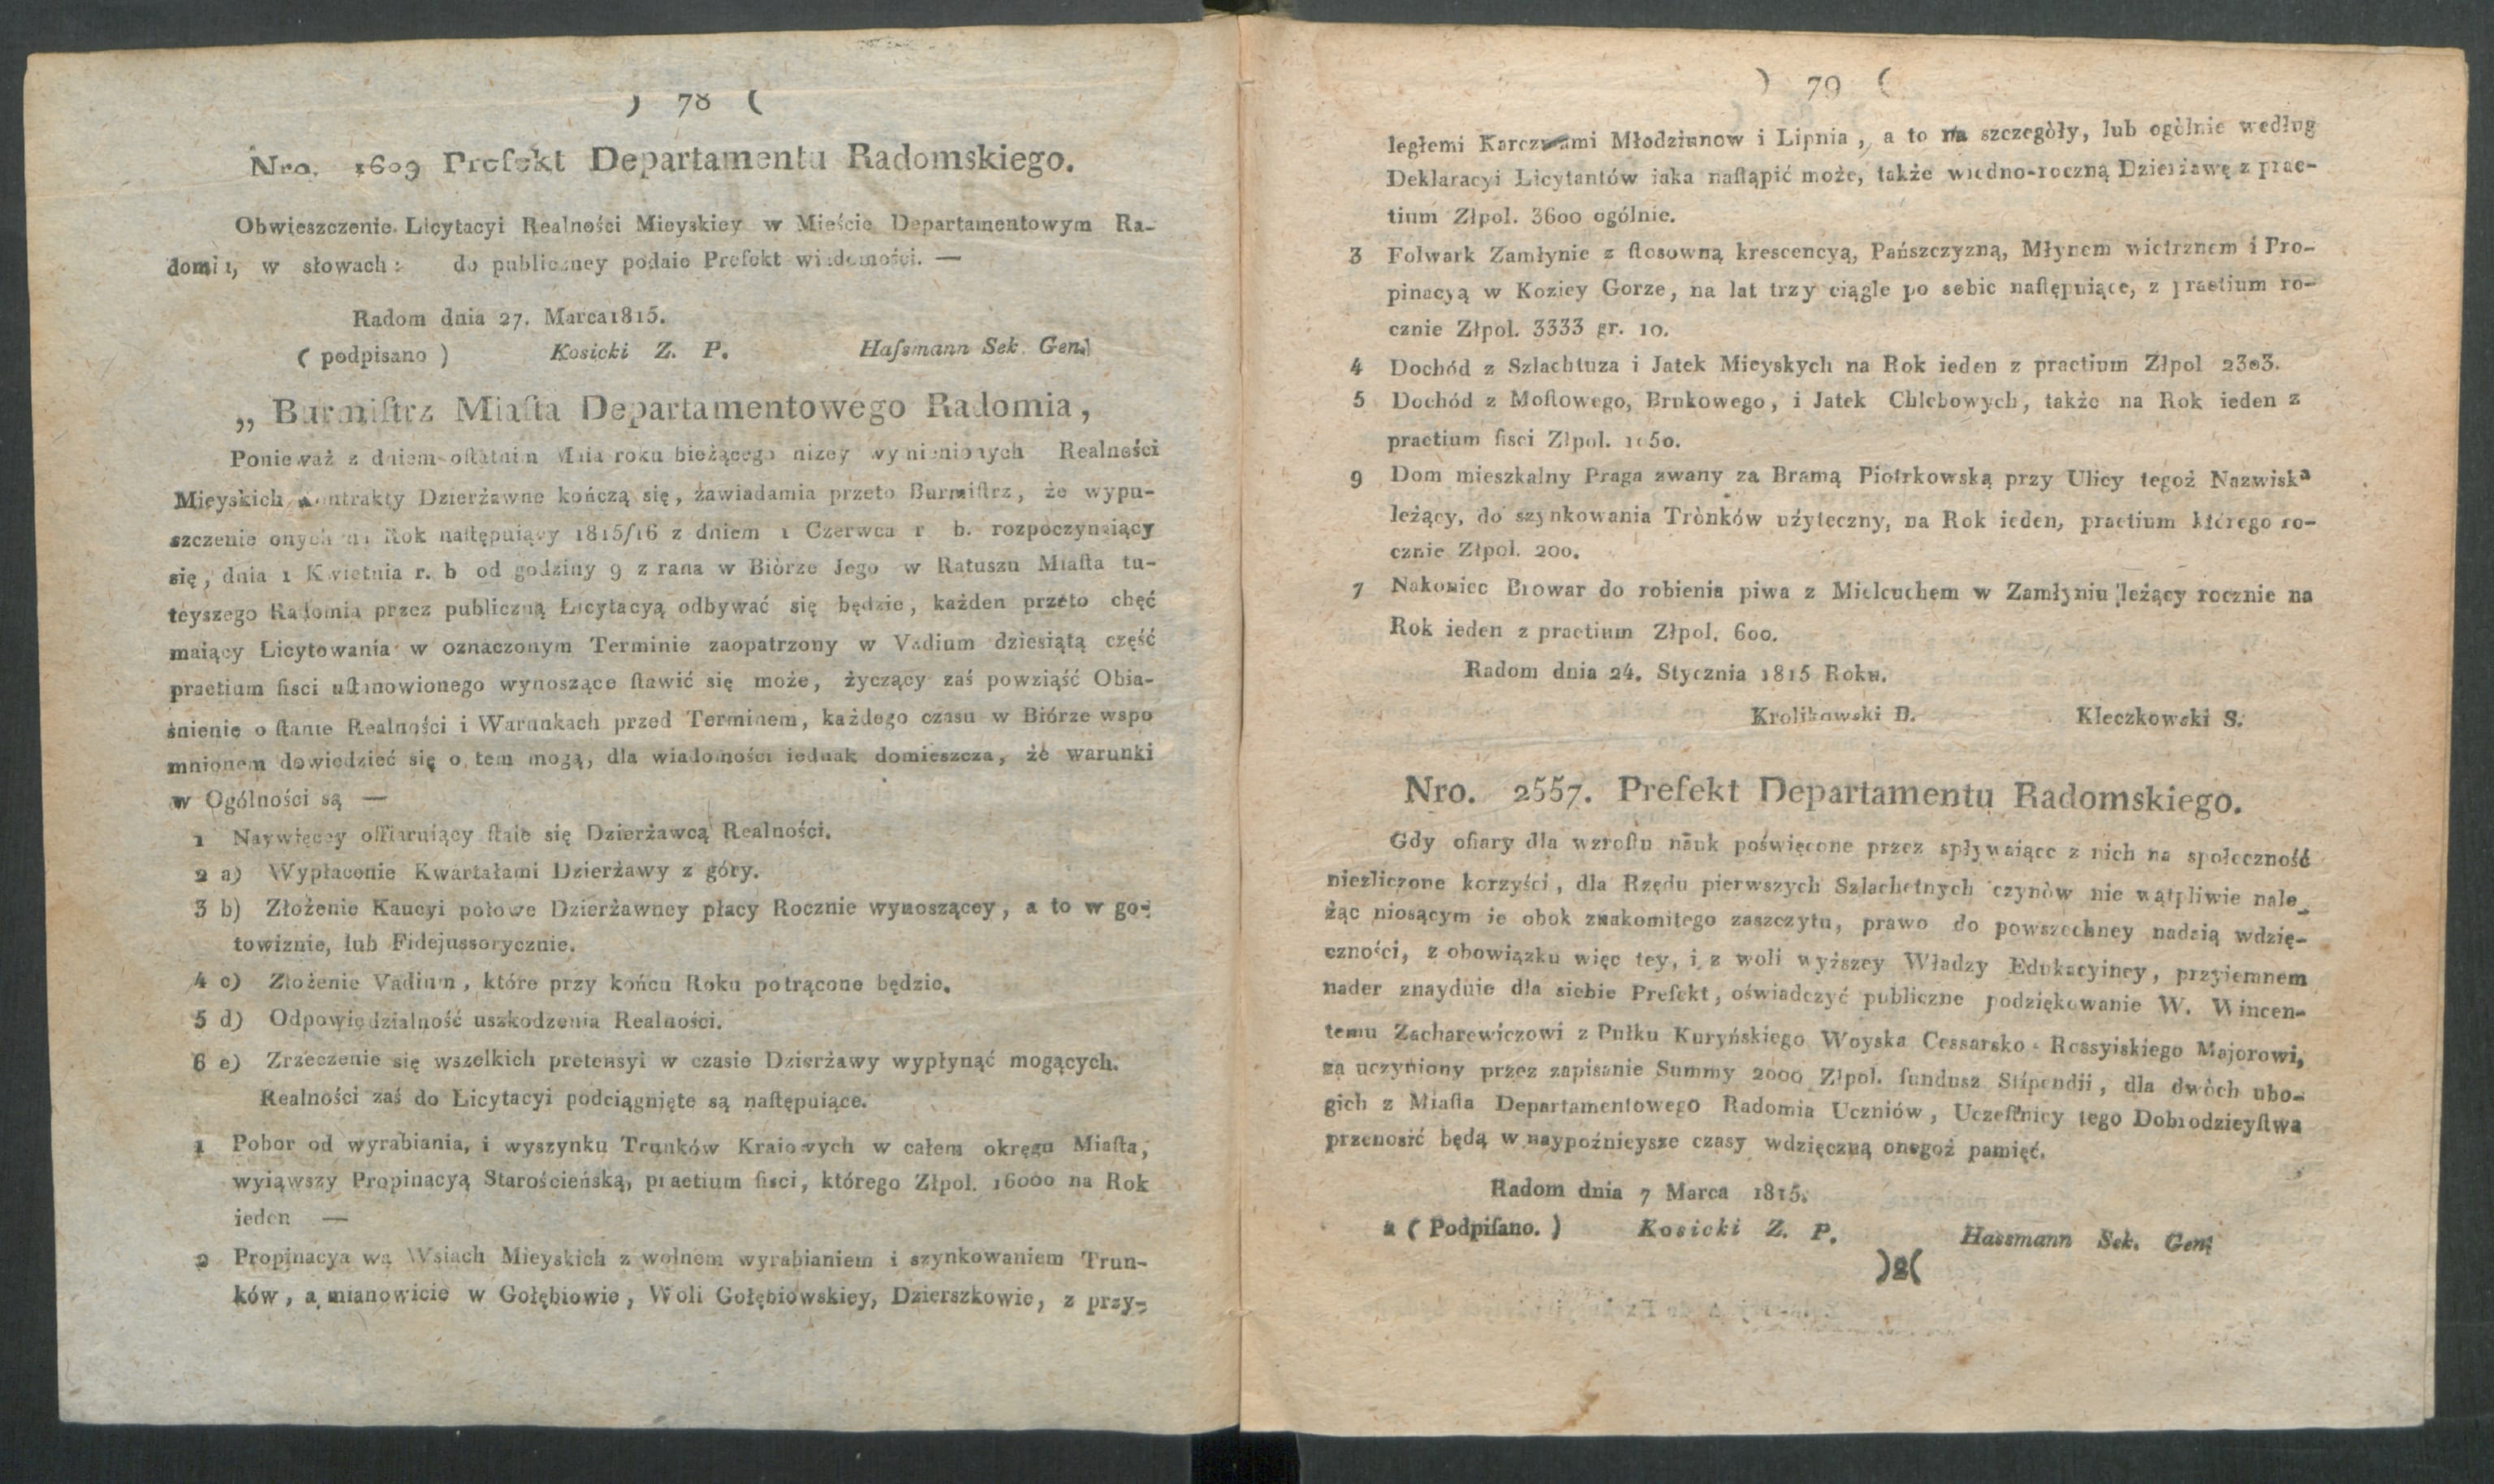 ) 78 (
Nro. 1609 Prefekt Departamentu Radomskiego.
Obwieszczenie Licytacyi Realności Mieyskiey w Mieście Departamentowym Ra-
domiu, w słowach: do publiczney podaie Prefekt wiadomości. —
Radom dnia 27. Marca 1815.
( podpisano ) Kosicki Z. P. Haſsmann Sek. Gen.
„ Burmiſtrz Miaſta Departamentowego Radomia,
Ponieważ z dniem oſtatnim Maia roku bieżącego niżey wymienionych Realności
Mieyskich Kontrakty Dzierżawne kończą się, zawiadamia przeto Burmiſtrz, że wypu-
szczenie onych na Rok naſtępuiący 1815/16 z dniem 1 Czerwca r b. rozpoczynaiący
się, dnia 1 Kwietnia r. b od godziny 9 z rana w Biòrze Jego w Ratuszu Miaſta tu-
teyszego Radomia przez publiczną Licytacyą odbywać się będzie, każden przeto chęć
maiący Licytowania w oznaczonym Terminie zaopatrzony w Vadium dziesiątą część
praetium fisci uſtanowionego wynoszące ſtawić się może, życzący zaś powziąść Obia-
śnienie o ſtanie Realności i Warunkach przed Terminem, każdego czasu w Biórze wspo
mnionem dowiedzieć się o tem mogą, dla wiadomości iednak domieszcza, że warunki
w Ogólności są —
1 Naywięcey offiaruiący ſtaie się Dzierżawcą Realności.
2 a) Wypłacenie Kwartałami Dzierżawy z góry.
3 b) Złożenie Kaucyi połowe Dzierżawney płacy Rocznie wynoszącey, a to w go-
towiznie, lub Fidejussorycznie.
4 c) Złożenie Vadium, które przy końcu Roku potrącone będzie.
5 d) Odpowiedzialność uszkodzenia Realności.
6 e) Zrzeczenie się wszelkich pretensyi w czasie Dzierżawy wypłynąć mogących.
Realności zaś do Licytacyi podciągnięte są naſtępuiące.
1 Pobor od wyrabiania, i wyszynku Trunków Kraiowych w całem okręgu Miaſta,
wyiąwszy Propinacyą Starościeńską, praetium fisci, którego Złpol. 16000 na Rok
ieden —
2 Propinacya wa Wsiach Mieyskich z wolnem wyrabianiem i szynkowaniem Trun-
ków, a mianowicie w Gołębiowie, Woli Gołębiowskiey, Dzierszkowie, z przy-
) 79 (
ległemi Karczmami Młodzianow i Lipnia, a to na szczegòły, lub ogòlnie według
Deklaracyi Licytantów iaka naſtąpić może, także wiedno-roczną Dzierżawę z prae-
tium Złpol. 3600 ogólnie.
3 Folwark Zamłynie z ſtosowną krescencyą, Pańszczyzną, Młynem wietrznem i Pro-
pinacyą w Koziey Gorze, na lat trzy ciągle po sobie naſtępuiące, z praetium ro-
cznie Złpol. 3333 gr. 10.
4 Dochód z Szlachtuza i Jatek Mieyskych na Rok ieden z praetium Złpol 2303.
5 Dochód z Moſtowego, Brukowego, i Jatek Chlebowych, także na Rok ieden z
praetium fisci Złpol. 1050.
9 Dom mieszkalny Praga zwany za Bramą Piotrkowską przy Ulicy tegoż Nazwiska
leżący, do szynkowania Trònków użyteczny, na Rok ieden, praetium którego ro-
cznie Złpol. 200.
7 Nakoniec Browar do robienia piwa z Mielcuchem w Zamłyniu leżący rocznie na
Rok ieden z praetium Złpol. 600.
Radom dnia 24. Stycznia 1815 Roku.
Krolikowski B. Kleczkowski S.
Nro. 2557. Prefekt Departamentu Radomskiego.
Gdy ofiary dla wzroſtu nauk poświęcone przez spływaiące z nich na społeczność
niezliczone korzyści, dla Rzędu pierwszych Szlachetnych czynòw nie wątpliwie nale_
żąc niosącym ie obok znakomitego zaszczytu, prawo do powszechney nadaią wdzię-
czności, z obowiązku więc tey, i z woli wyższey Władzy Edukacyiney, przyiemnem
nader znayduie dla siebie Prefekt, oświadczyć publiczne podziękowanie W. Wincen-
temu Zacharewiczowi z Pułku Kuryńskiego Woyska Cessarsko - Rossyiskiego Majorowi,
za uczyniony przez zapisanie Summy 2000 Złpol. fundusz Stipendii, dla dwòch ubo-
gich z Miaſta Departamentowego Radomia Uczniów, Uczeſtnicy tego Dobrodzieyſtwa
przenosić będą w naypoźnieysze czasy wdzięczną onegoż pamięć.
Radom dnia 7 Marca 1815.
2 ( Podpiſano. ) Kosicki Z. P. Hassmann Sek. Gen.
)2(